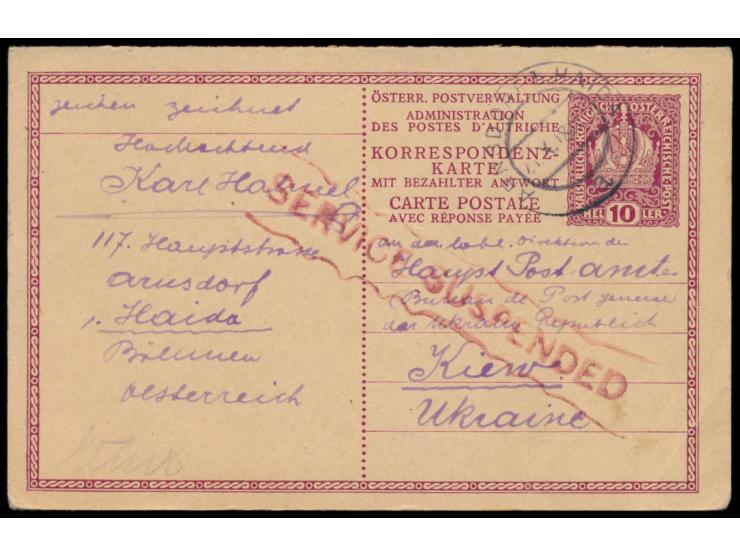 zeichen zeichnet
Hochachtend
Karl Hammel
117. Hauptstrasse
Arnsdorf
Haida
Böhmen
Oesterreich
ÖSTERR. POSTVERWALTUNG
ADMINISTRATION
DES POSTES D'AUTRICHE
KORRESPONDENZ-
KARTE
MIT BEZAHLTER ANTWORT
CARTE POSTALE
AVEC RÉPONSE PAYÉE
KAISERLICHE KÖNIGLICHE ÖSTERREICHISCHE POST
HEL 10 LER
ARNSDORF HAIDA
SERVICE SUSPENDED
an das löbl. Direktion des
Haupt Post amtes
(Bureau de Post generale
der Ukrain Republick
Kiew
Ukraine